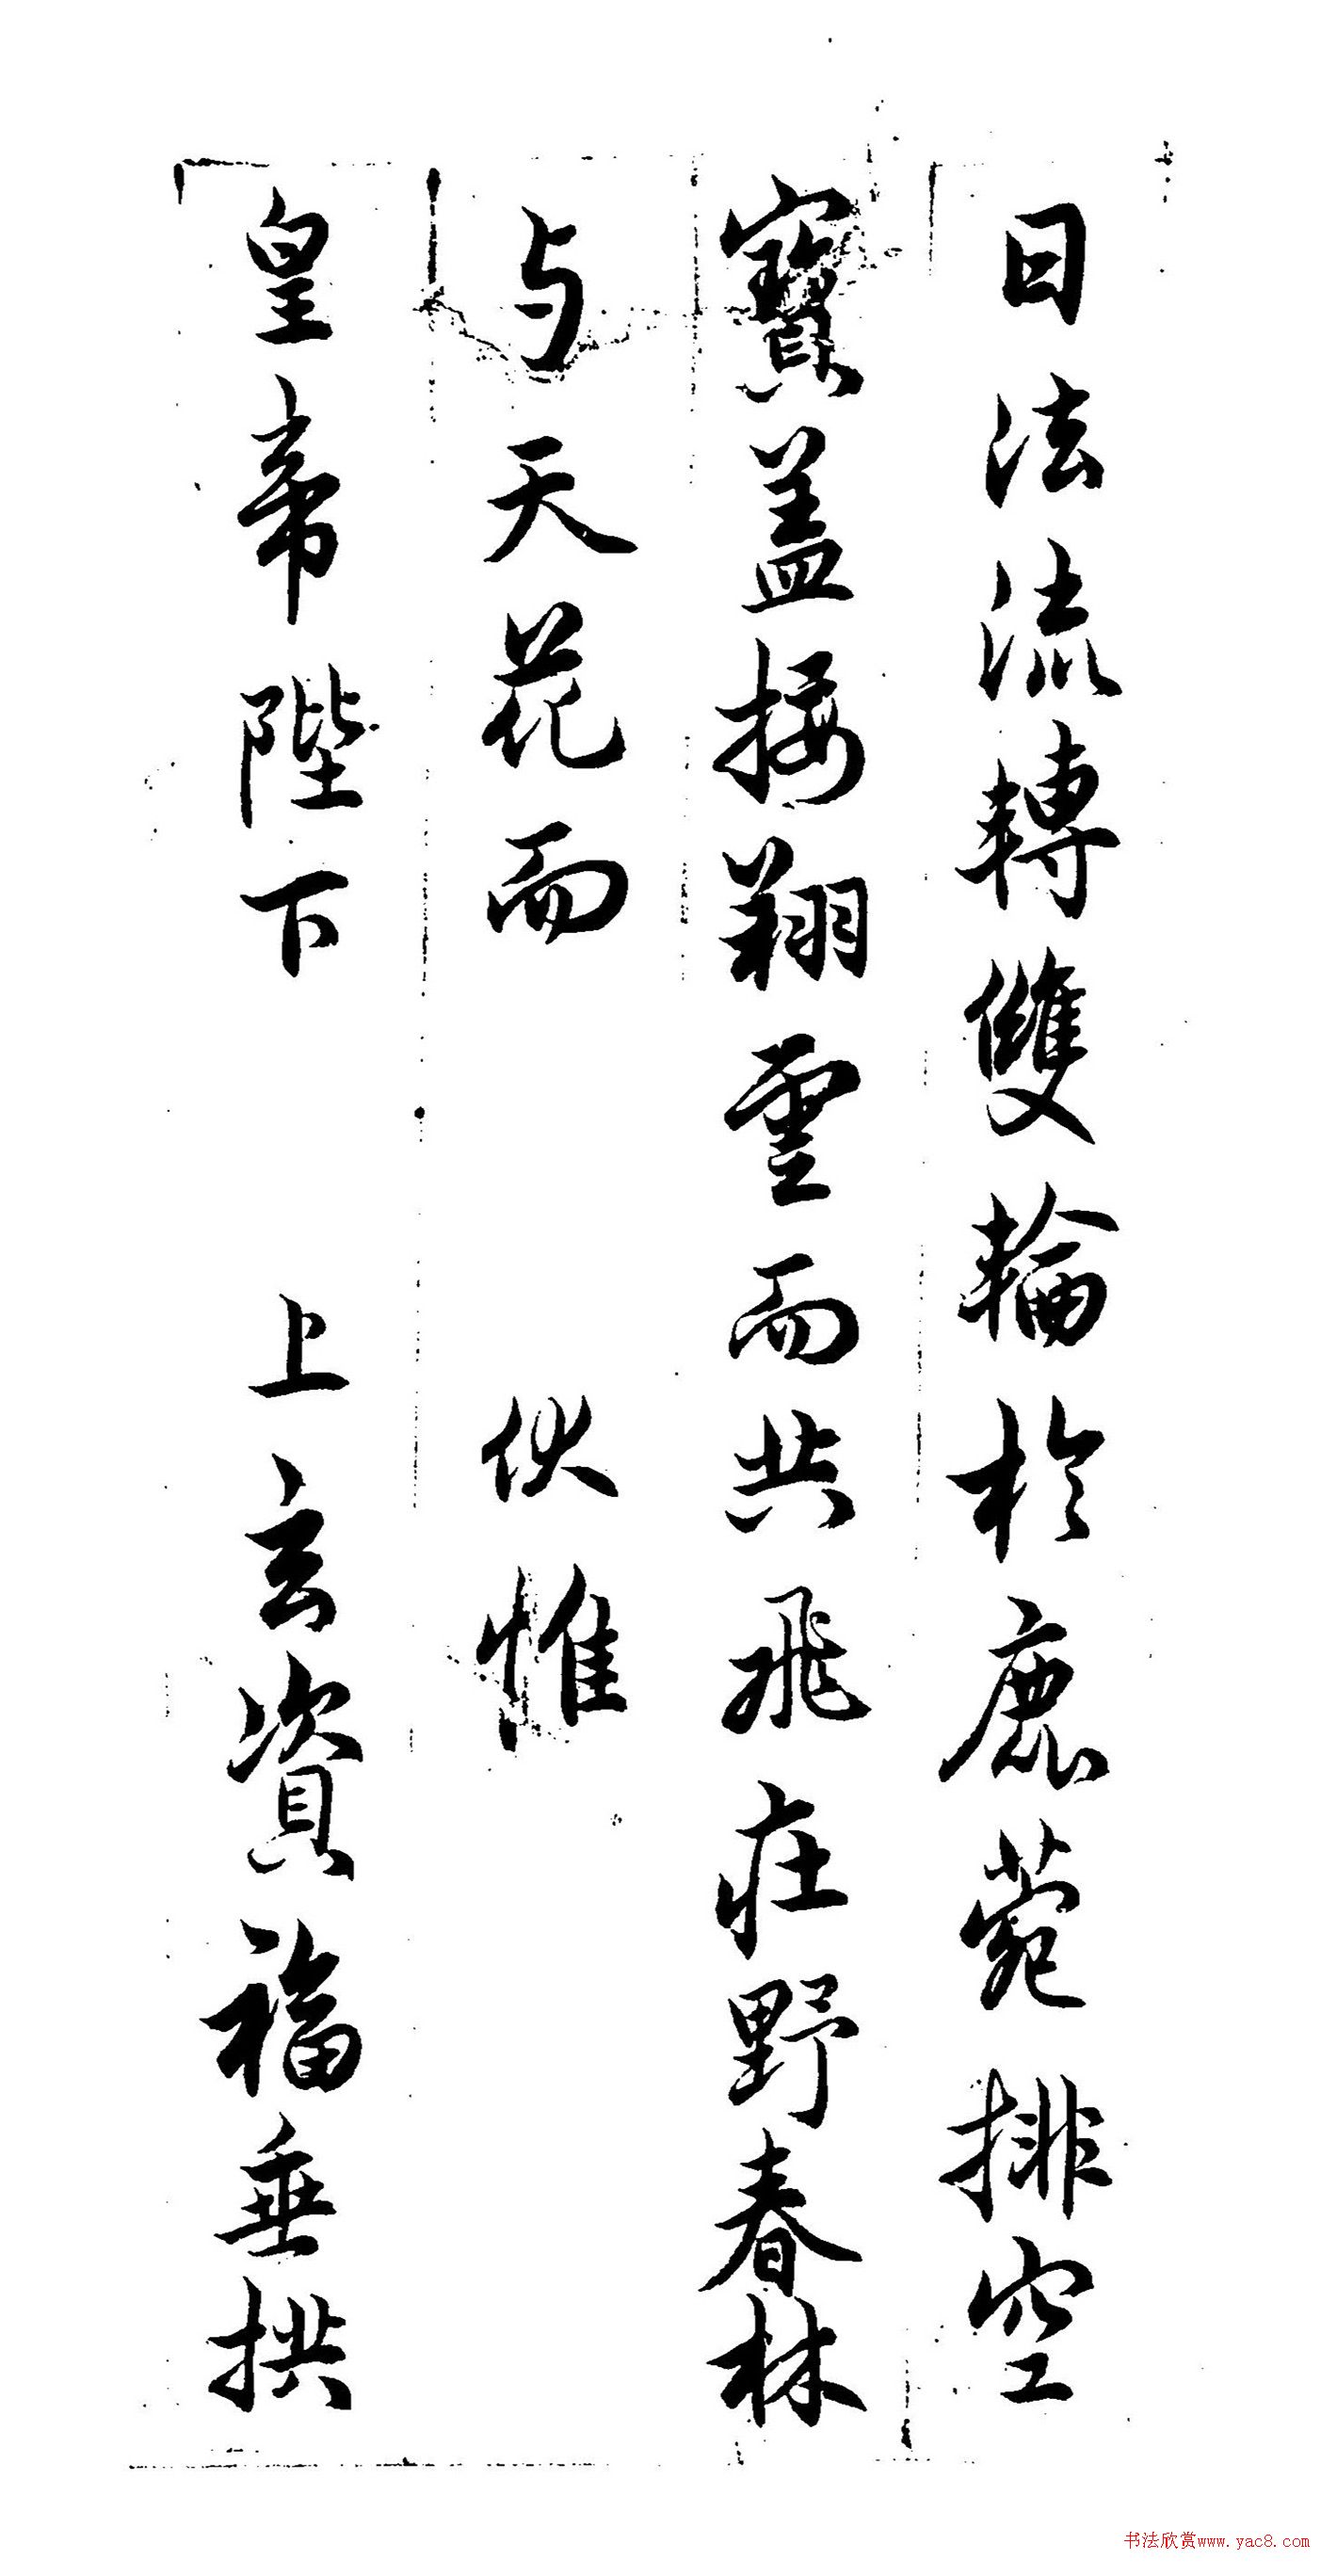 日法流轉雙輪於鹿菀排空
寶蓋接翔雲而共飛莊野春林
与天花而 伏惟
皇帝陛下 上玄資福垂拱
书法欣赏www.yac8.com